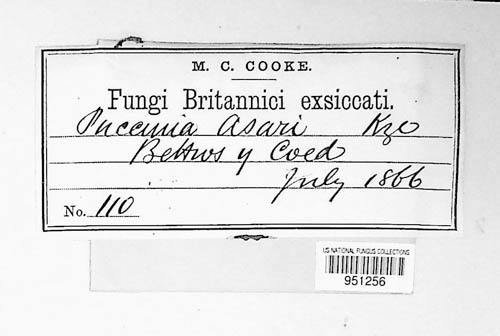 M. C. COOKE.
Fungi Britannici exsiccati.
Puccinia Asari Kze
Bettws y Coed
July 1866
No. 110
US NATIONAL FUNGUS COLLECTIONS
951256